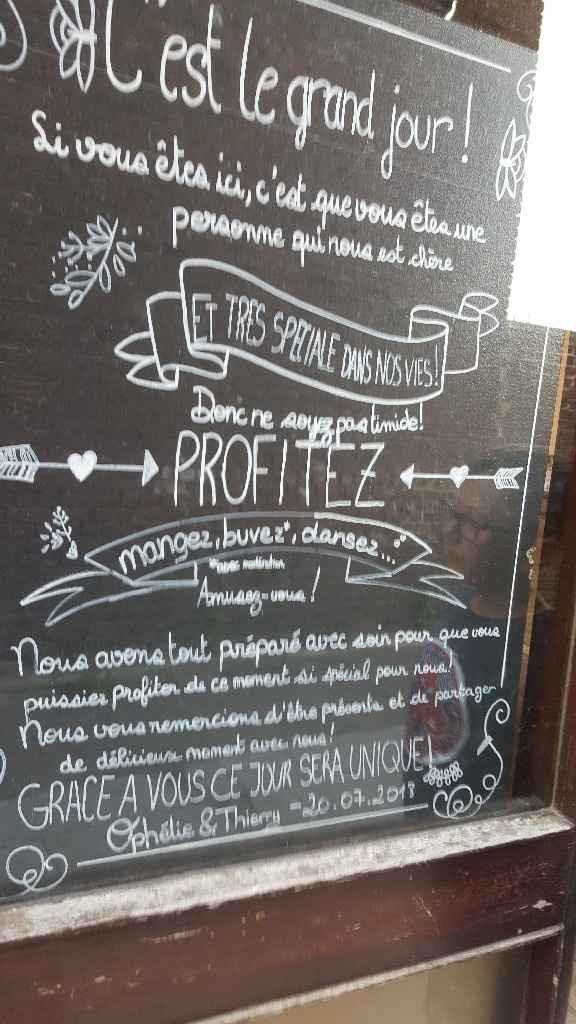 C'est le grand jour !
Si vous êtes ici, c'est que vous êtes une
personne qui nous est chère
ET TRES SPECIALE DANS NOS VIES !
Donc ne soyez pas timide !
PROFITEZ
mangez, buvez*, dansez...*
*avec modération
Amusez-vous !
Nous avons tout préparé avec soin pour que vous
puissiez profiter de ce moment si spécial pour nous !
Nous vous remercions d'être présents et de partager
de délicieux moment avec nous !
GRACE A VOUS CE JOUR SERA UNIQUE !
Ophélie & Thierry - 20.07.2018